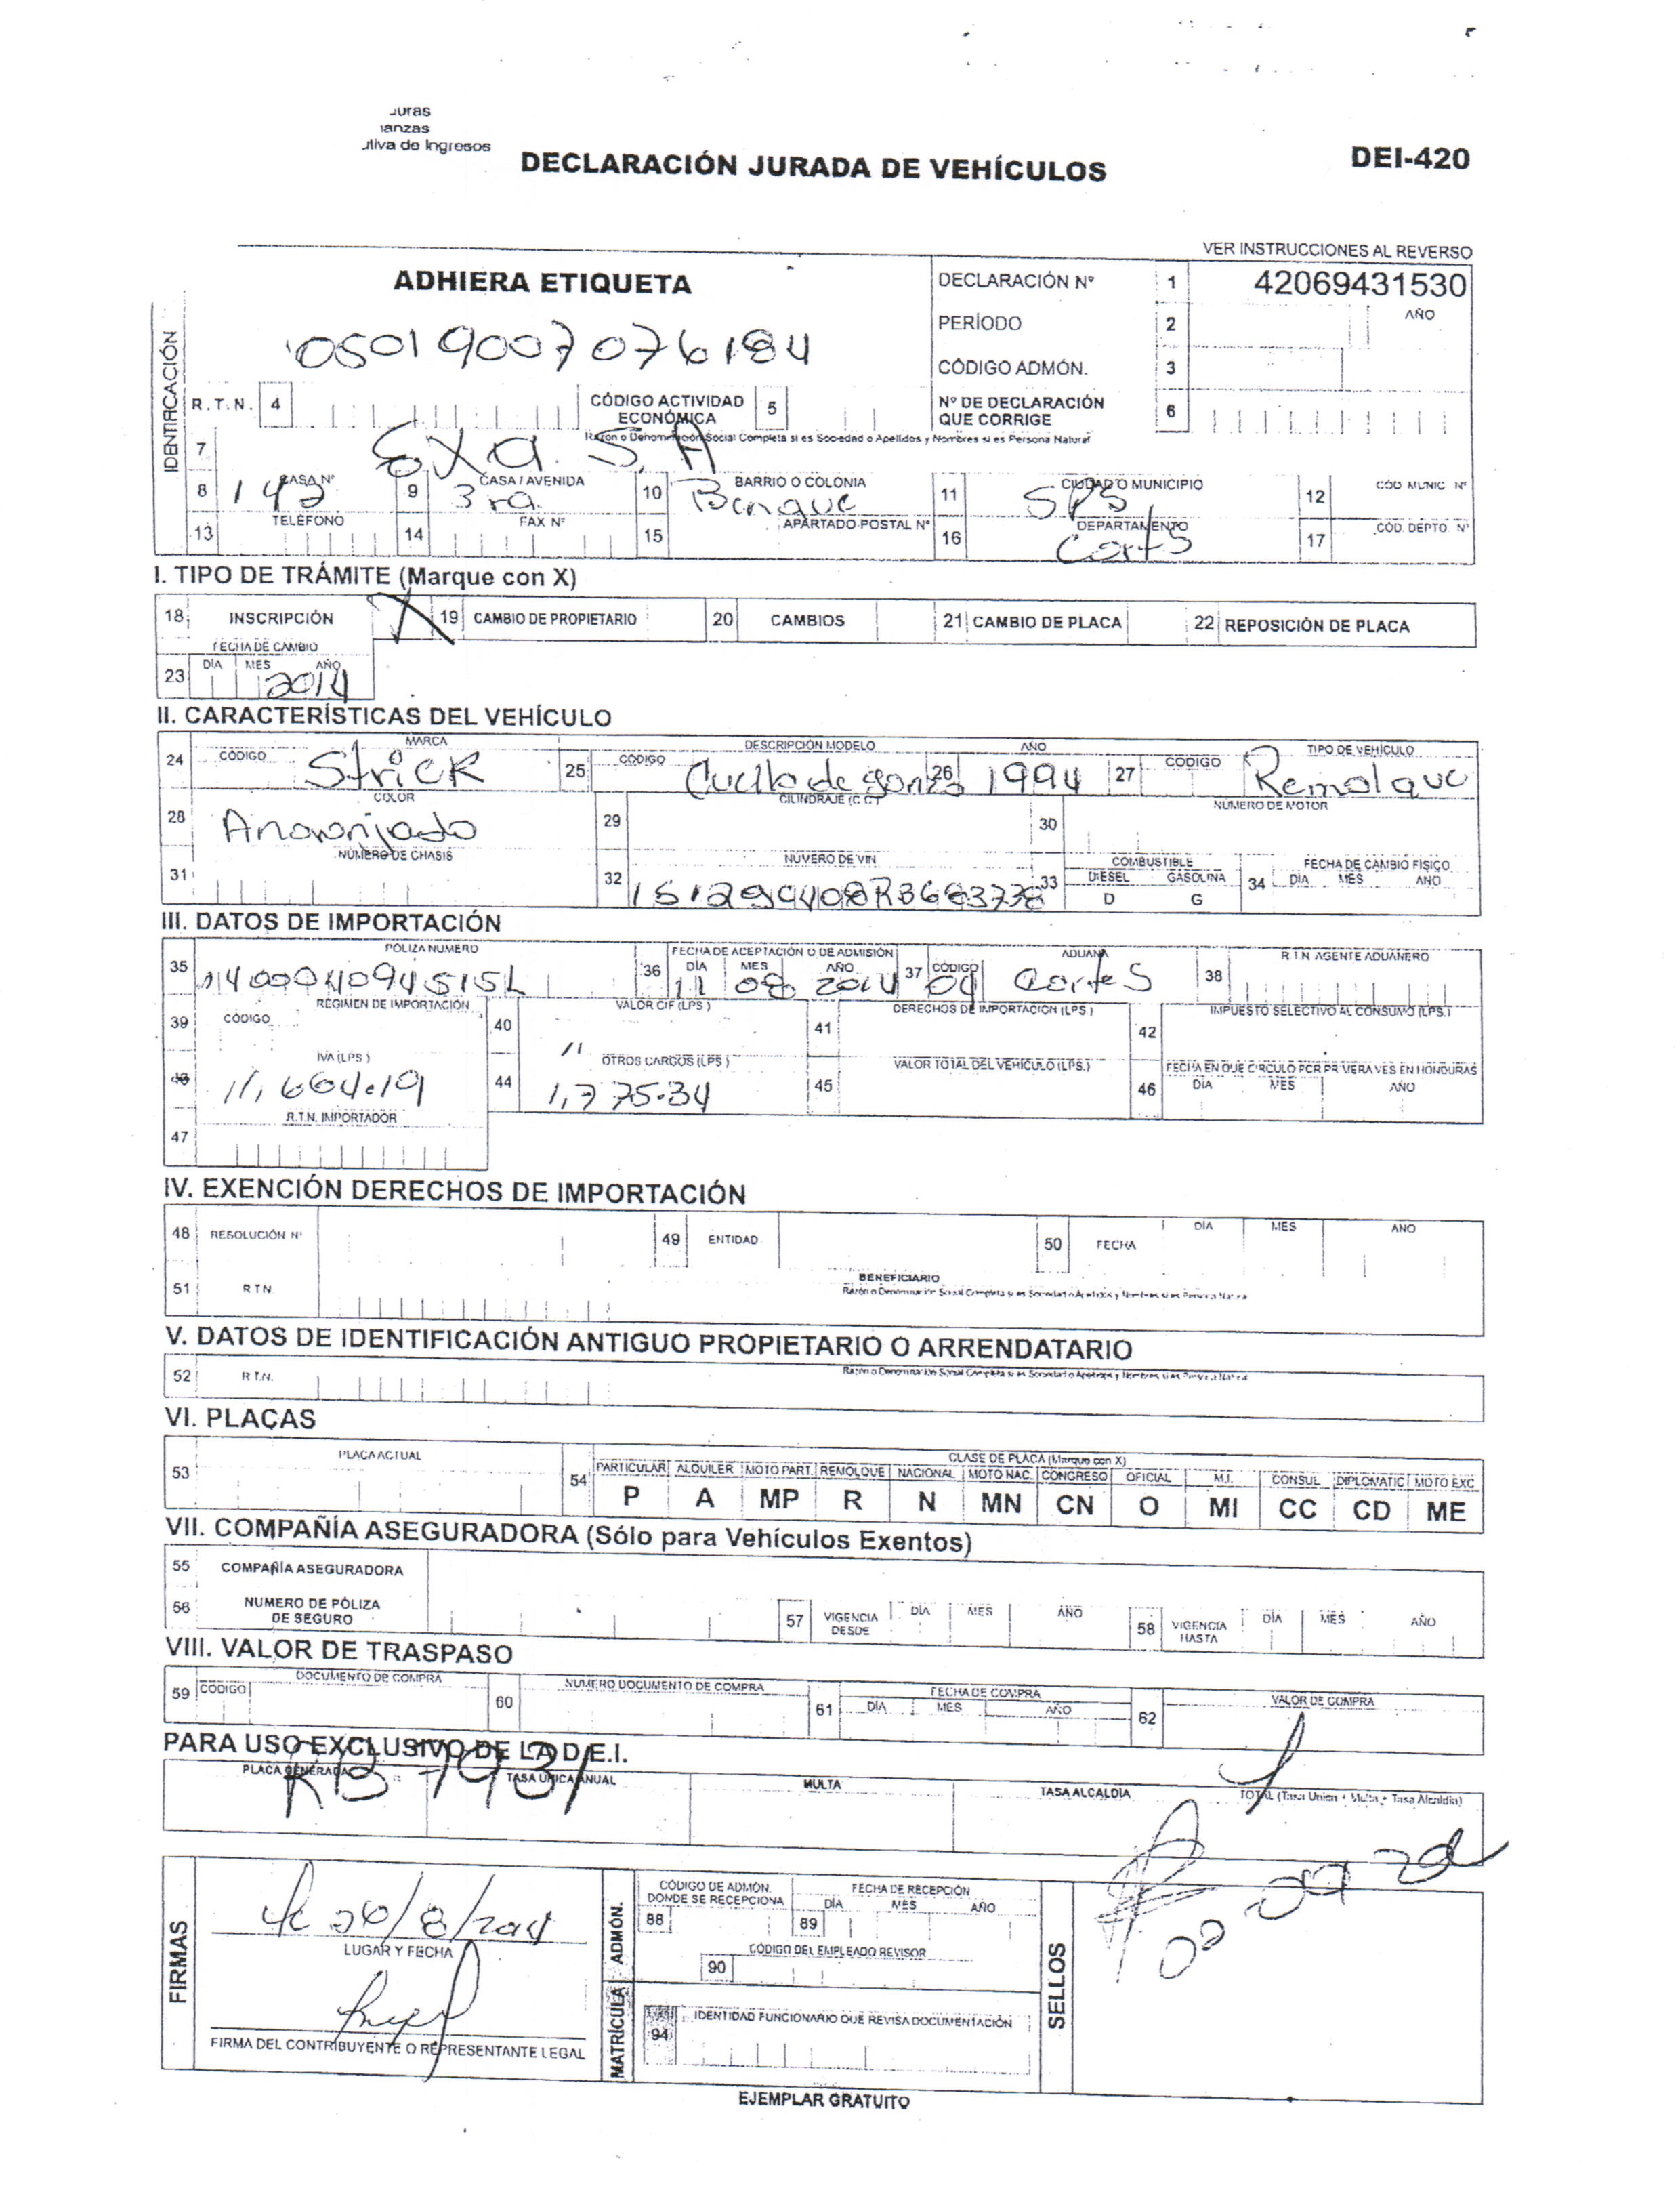 uras
anzas
utiva de Ingresos
DECLARACIÓN JURADA DE VEHÍCULOS
DEI-420
VER INSTRUCCIONES AL REVERSO
ADHIERA ETIQUETA
DECLARACIÓN Nº 1 42069431530
05019007076184
PERÍODO 2 AÑO
CÓDIGO ADMÓN. 3
IDENTIFICACIÓN
R.T.N. 4 CÓDIGO ACTIVIDAD ECONÓMICA 5 Nº DE DECLARACIÓN QUE CORRIGE 6
7 Razón o Denominación Social Completa si es Sociedad o Apellidos y Nombres si es Persona Natural
Exa. S.A
8 CASA Nº 142 9 CASA / AVENIDA 3ra 10 BARRIO O COLONIA 11 CIUDAD O MUNICIPIO SPS 12 CÓD MUNIC Nº
13 TELÉFONO 14 FAX Nº 15 APARTADO POSTAL Nº 16 DEPARTAMENTO Corts 17 CÓD. DEPTO. Nº
I. TIPO DE TRÁMITE (Marque con X)
18 INSCRIPCIÓN X 19 CAMBIO DE PROPIETARIO 20 CAMBIOS 21 CAMBIO DE PLACA 22 REPOSICIÓN DE PLACA
FECHA DE CAMBIO
23 DÍA MES AÑO 2014
II. CARACTERÍSTICAS DEL VEHÍCULO
24 CÓDIGO MARCA Strick 25 CÓDIGO DESCRIPCIÓN MODELO Cuello de ganzo 26 AÑO 1994 27 CÓDIGO TIPO DE VEHÍCULO Remolque
28 COLOR Anaranjado 29 CILINDRAJE (C.C.) 30 NÚMERO DE MOTOR
31 NÚMERO DE CHASIS 32 NÚMERO DE VIN 33 COMBUSTIBLE DIESEL GASOLINA D G 34 FECHA DE CAMBIO FÍSICO DÍA MES AÑO
III. DATOS DE IMPORTACIÓN
35 PÓLIZA NÚMERO 36 FECHA DE ACEPTACIÓN O DE ADMISIÓN DÍA MES AÑO 11 08 2014 37 CÓDIGO 04 ADUANA Cortes 38 R.T.N. AGENTE ADUANERO
39 RÉGIMEN DE IMPORTACIÓN CÓDIGO 40 VALOR CIF (LPS.) 41 DERECHOS DE IMPORTACIÓN (LPS.) 42 IMPUESTO SELECTIVO AL CONSUMO (LPS.)
43 IVA (LPS.) 11,664.19 44 OTROS CARGOS (LPS.) 1,775.34 45 VALOR TOTAL DEL VEHÍCULO (LPS.) 46 FECHA EN QUE CIRCULO POR PRIMERA VES EN HONDURAS DÍA MES AÑO
47 R.T.N. IMPORTADOR
IV. EXENCIÓN DERECHOS DE IMPORTACIÓN
48 RESOLUCIÓN Nº 49 ENTIDAD 50 FECHA DÍA MES AÑO
51 RTN BENEFICIARIO
Razón o Denominación Social Completa si es Sociedad o Apellidos y Nombres si es Persona Natural
V. DATOS DE IDENTIFICACIÓN ANTIGUO PROPIETARIO O ARRENDATARIO
52 R.T.N. Razón o Denominación Social Completa si es Sociedad o Apellidos y Nombres si es Persona Natural
VI. PLACAS
53 PLACA ACTUAL 54 CLASE DE PLACA (Marque con X)
PARTICULAR ALQUILER MOTO PART. REMOLQUE NACIONAL MOTO NAC. CONGRESO OFICIAL M.I. CONSUL DIPLOMATIC MOTO EXC
P A MP R N MN CN O MI CC CD ME
VII. COMPAÑÍA ASEGURADORA (Sólo para Vehículos Exentos)
55 COMPAÑÍA ASEGURADORA
56 NUMERO DE PÓLIZA DE SEGURO 57 VIGENCIA DESDE DÍA MES AÑO 58 VIGENCIA HASTA DÍA MES AÑO
VIII. VALOR DE TRASPASO
59 CÓDIGO DOCUMENTO DE COMPRA 60 NUMERO DOCUMENTO DE COMPRA 61 FECHA DE COMPRA DÍA MES AÑO 62 VALOR DE COMPRA
PARA USO EXCLUSIVO DE LA D.E.I.
PLACA GENERADA TASA ÚNICA ANUAL MULTA TASA ALCALDÍA TOTAL (Tasa Union + Multa + Tasa Alcaldia)
FIRMAS
26/8/2014
LUGAR Y FECHA
FIRMA DEL CONTRIBUYENTE O REPRESENTANTE LEGAL
MATRÍCULA ADMÓN.
CÓDIGO DE ADMÓN. DONDE SE RECEPCIONA 88
FECHA DE RECEPCIÓN 89 DÍA MES AÑO
CÓDIGO DEL EMPLEADO REVISOR 90
94 IDENTIDAD FUNCIONARIO QUE REVISA DOCUMENTACIÓN
SELLOS
EJEMPLAR GRATUITO